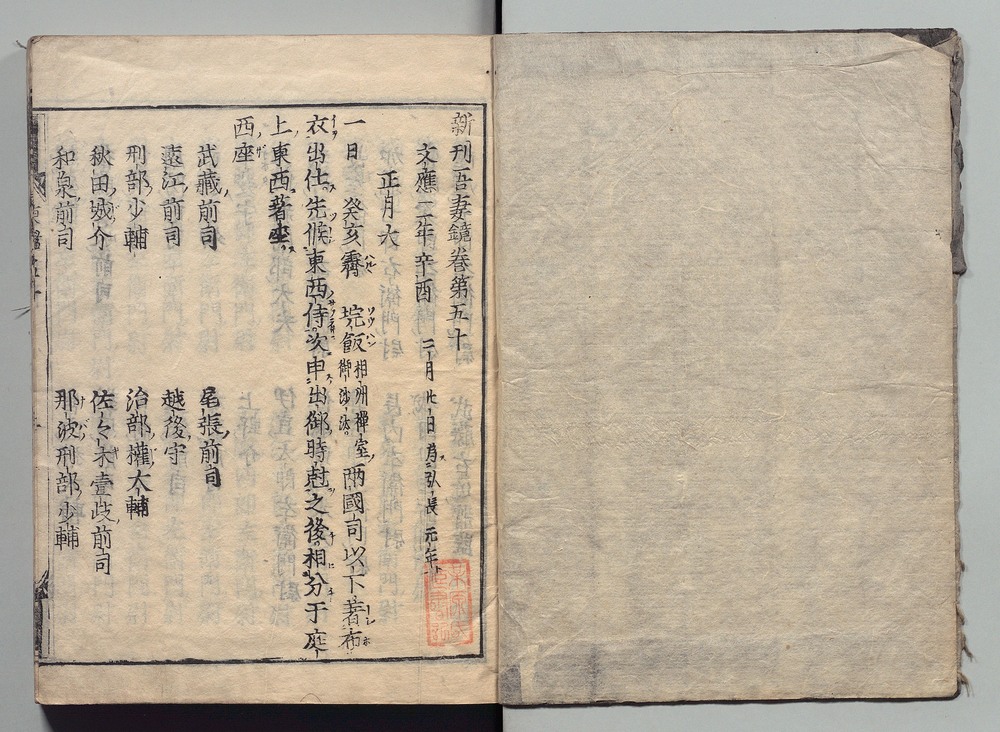 新刊吾妻鏡巻第五十
文應二年辛酉 二月廿日為弘長元年
正月大
一日 癸亥霽 垸飯相州禅室御沙汰兩國司以下著布
衣出仕先候東西侍次申出御時尅之後相分于庭
上東西著座
西座
武藏前司 尾張前司
遠江前司 越後守
刑部少輔 治部權大輔
秋田城介 佐々木壹岐前司
和泉前司 那波刑部少輔